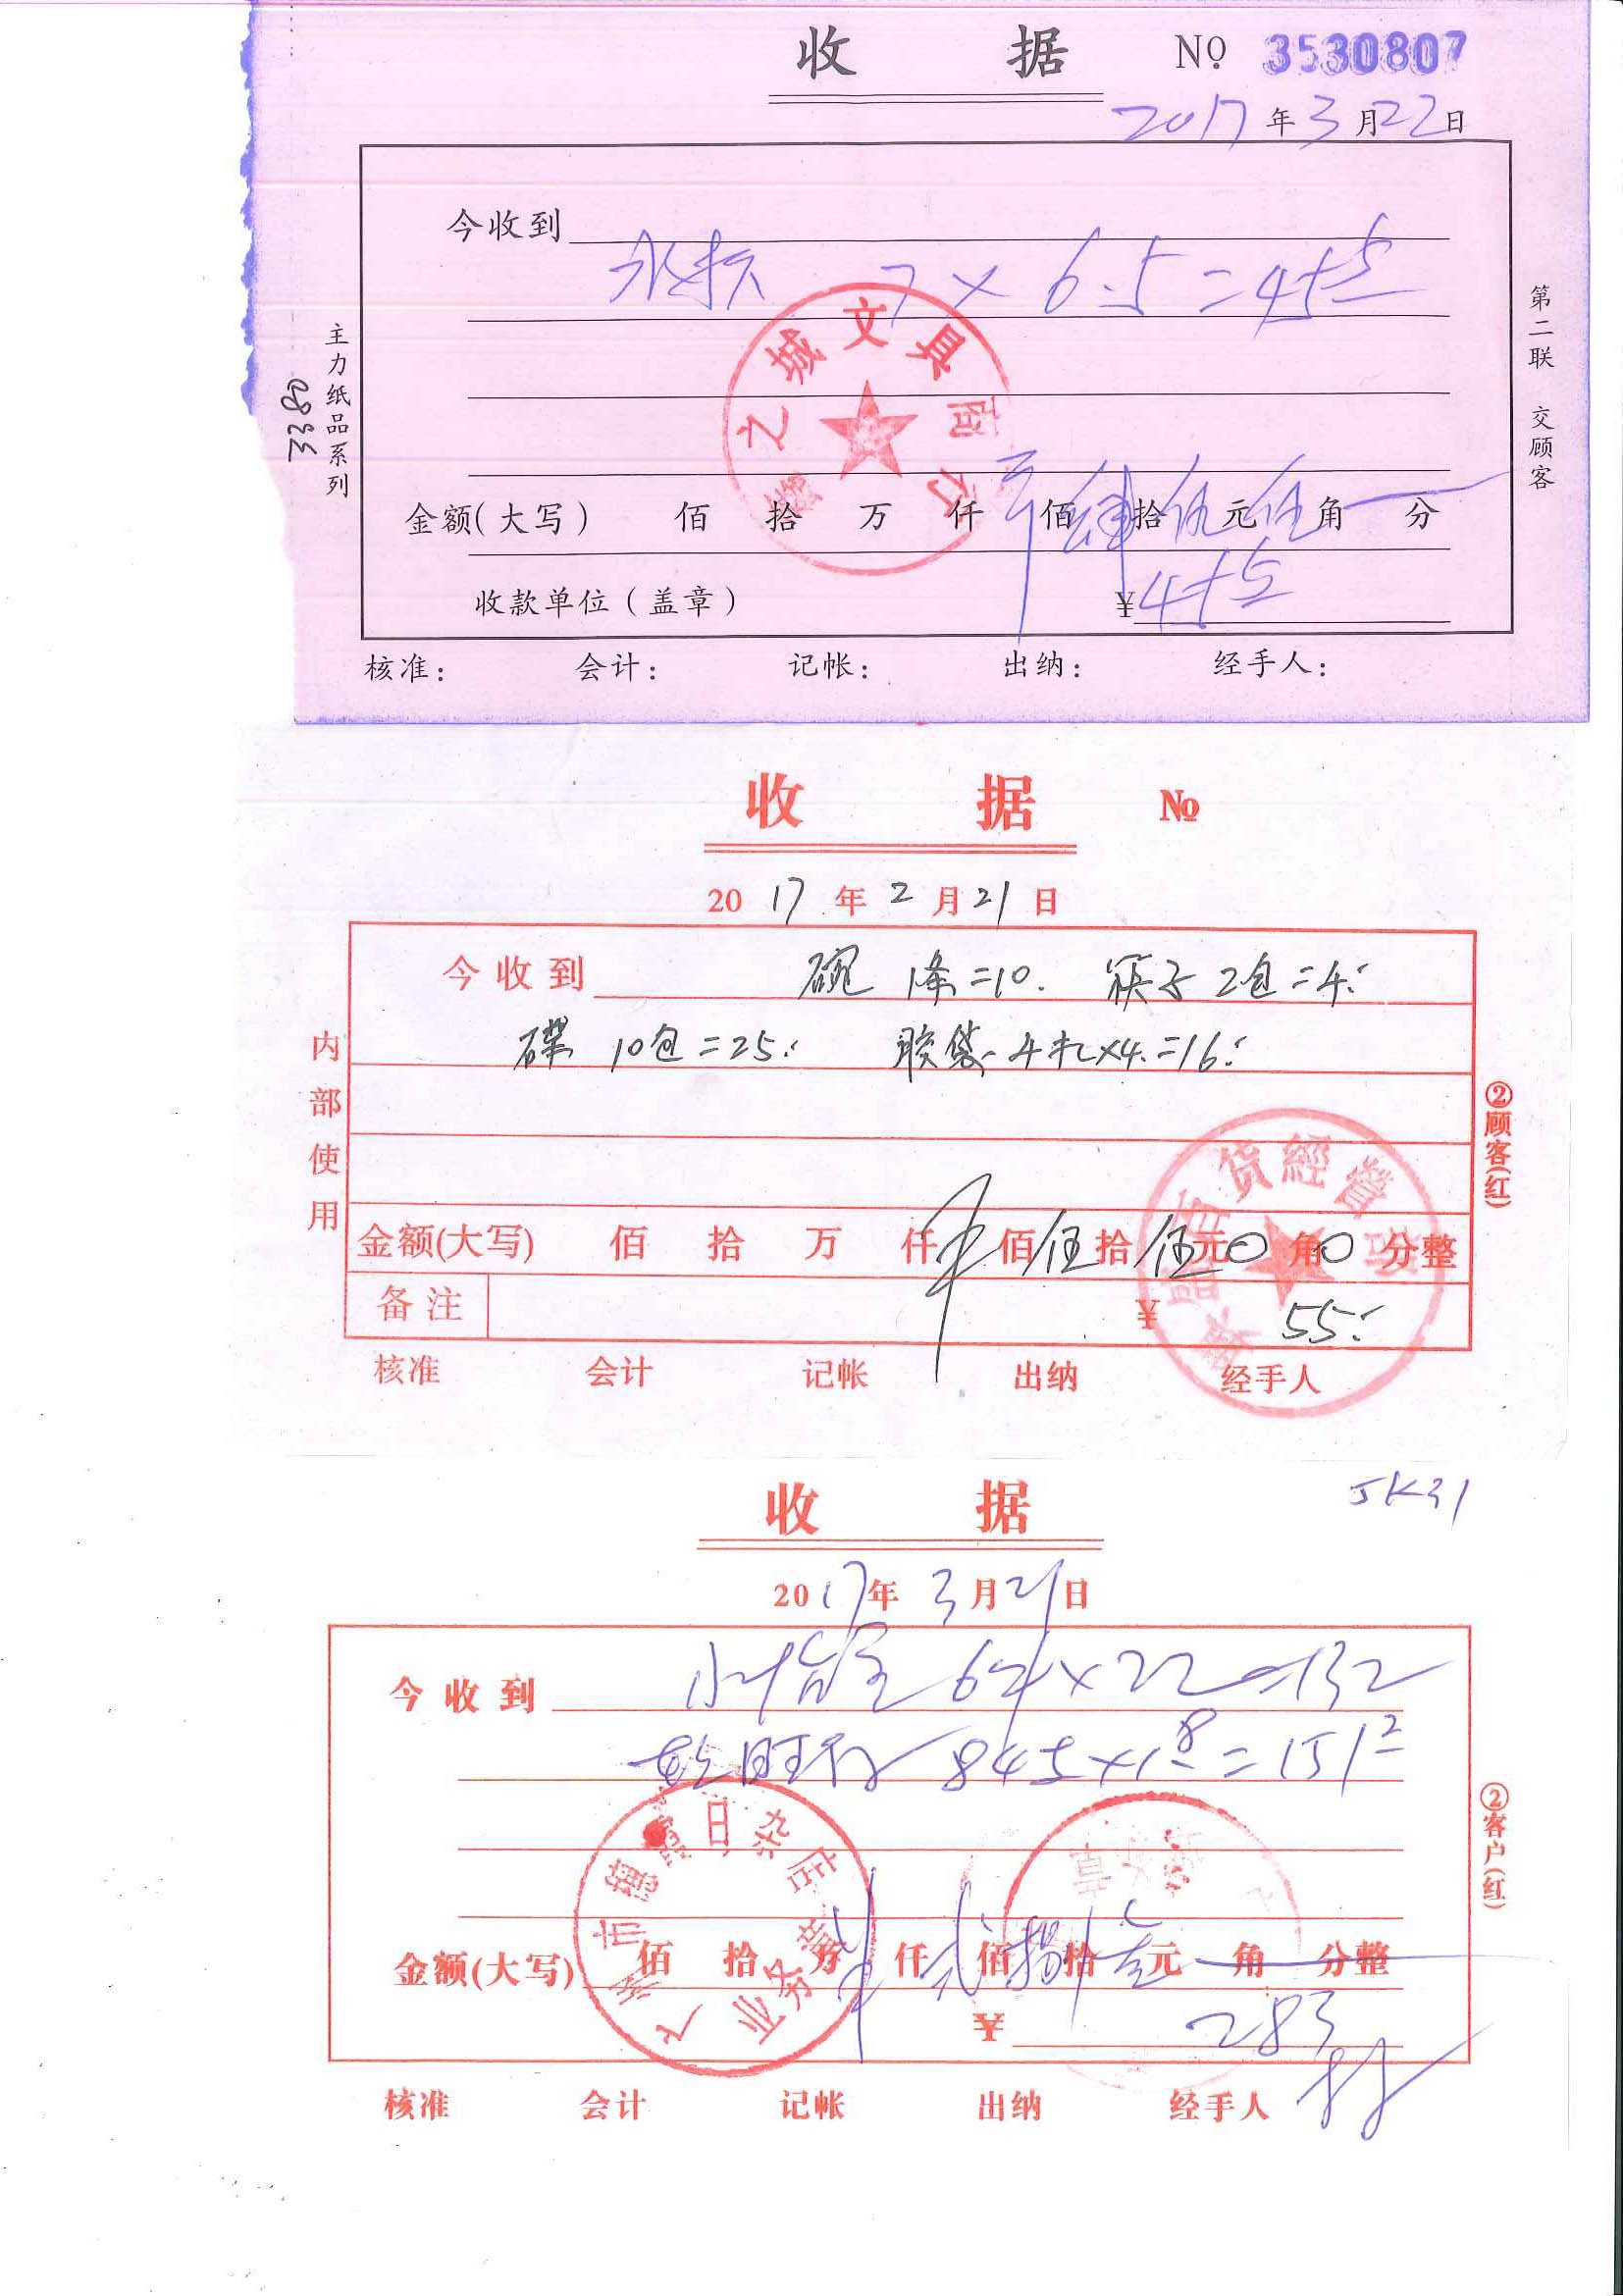 收 据 № 3530807
2017年3月22日
今收到
7 × 6.5 = 45.5
金额(大写) 佰 拾 万 仟 佰 肆 拾 伍 元 伍 角 分
收款单位(盖章) ¥ 45.5
核准: 会计: 记帐: 出纳: 经手人:
主力纸品系列
3380
第二联 交顾客
之城文具商行
收 据 №
2017年2月21日
今收到 碗 1条=10. 筷子 2包=4.
碟 10包=25. 胶袋 4扎×4.=16.
金额(大写) 佰 拾 万 仟 佰 伍 拾 伍 元 0 角 0 分整
备注 ¥ 55.
核准 会计 记帐 出纳 经手人
内部使用
②顾客(红)
百货經營部
收 据
JK31
2017年3月21日
今收到 ×22=132
84 ×1.8=151.2
金额(大写) 佰 拾 万 仟 贰 佰 捌 拾 叁 元 角 分整
¥ 283
核准 会计 记帐 出纳 经手人
②客户(红)
广州市穗霞日杂店
业务章